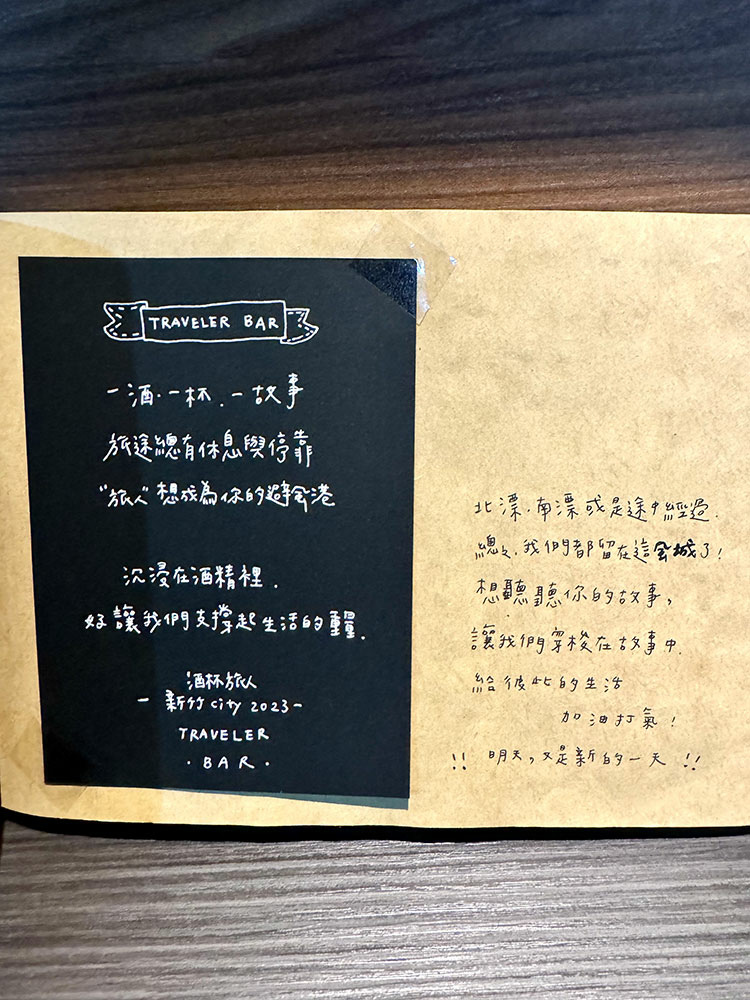 TRAVELER BAR
一酒.一杯.一故事
旅途總有休息與停靠
"旅人"想成為你的避風港
沉浸在酒精裡.
好讓我們支撐起生活的重量.
酒杯旅人
- 新竹 city 2023 -
TRAVELER
· BAR ·
北漂.南漂或是途中經過.
總之.我們都留在這風城了!
想聽聽你的故事,
讓我們穿梭在故事中.
給彼此的生活
加油打氣!
!! 明天,又是新的一天 !!